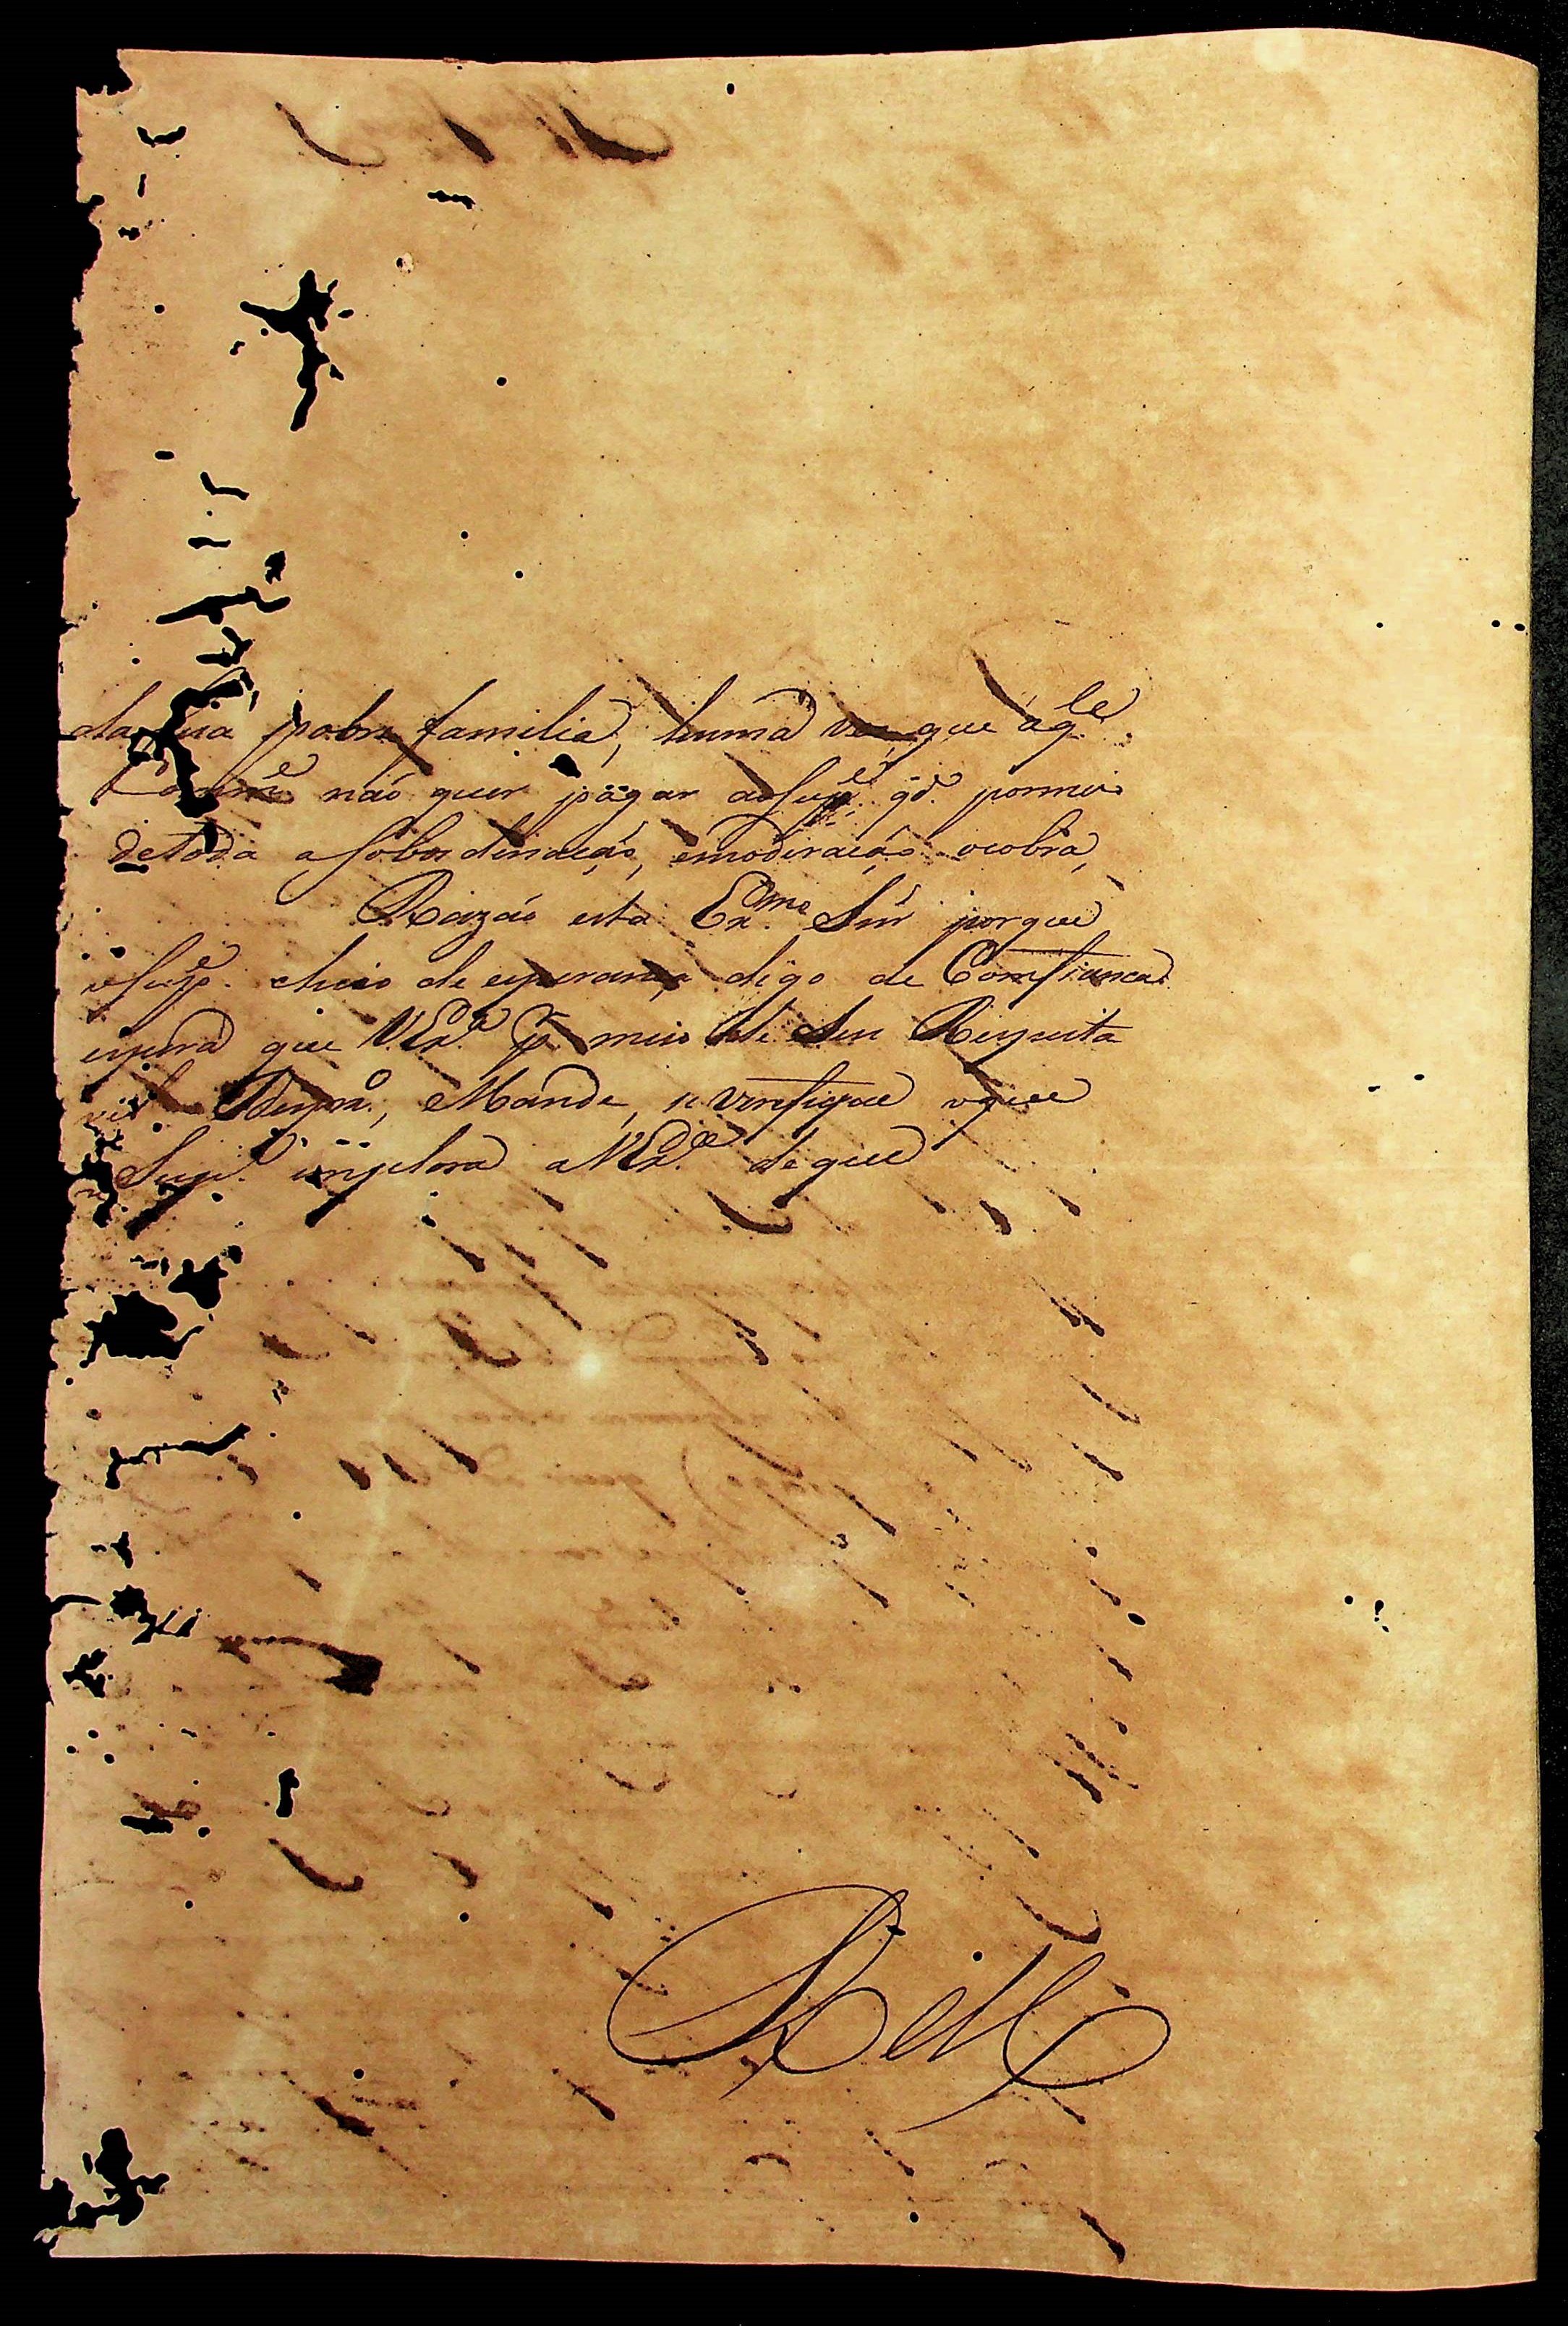 da sua pobre familia, huma vez que aq.le
Comm.e não quer pagar ao Sup.e q.do por meio
de toda a Sobordinação, e moderação o cobra,
Razão esta Ex.mo Snr̃ porque
o Sup.e cheio de esperança digo de Comfianca
espera que V.Ex.a p. meio de Seu Respeita
vel Desp.o, Mande, se verifique o que
o Sup.e implora a V.Ex.a de que
R M